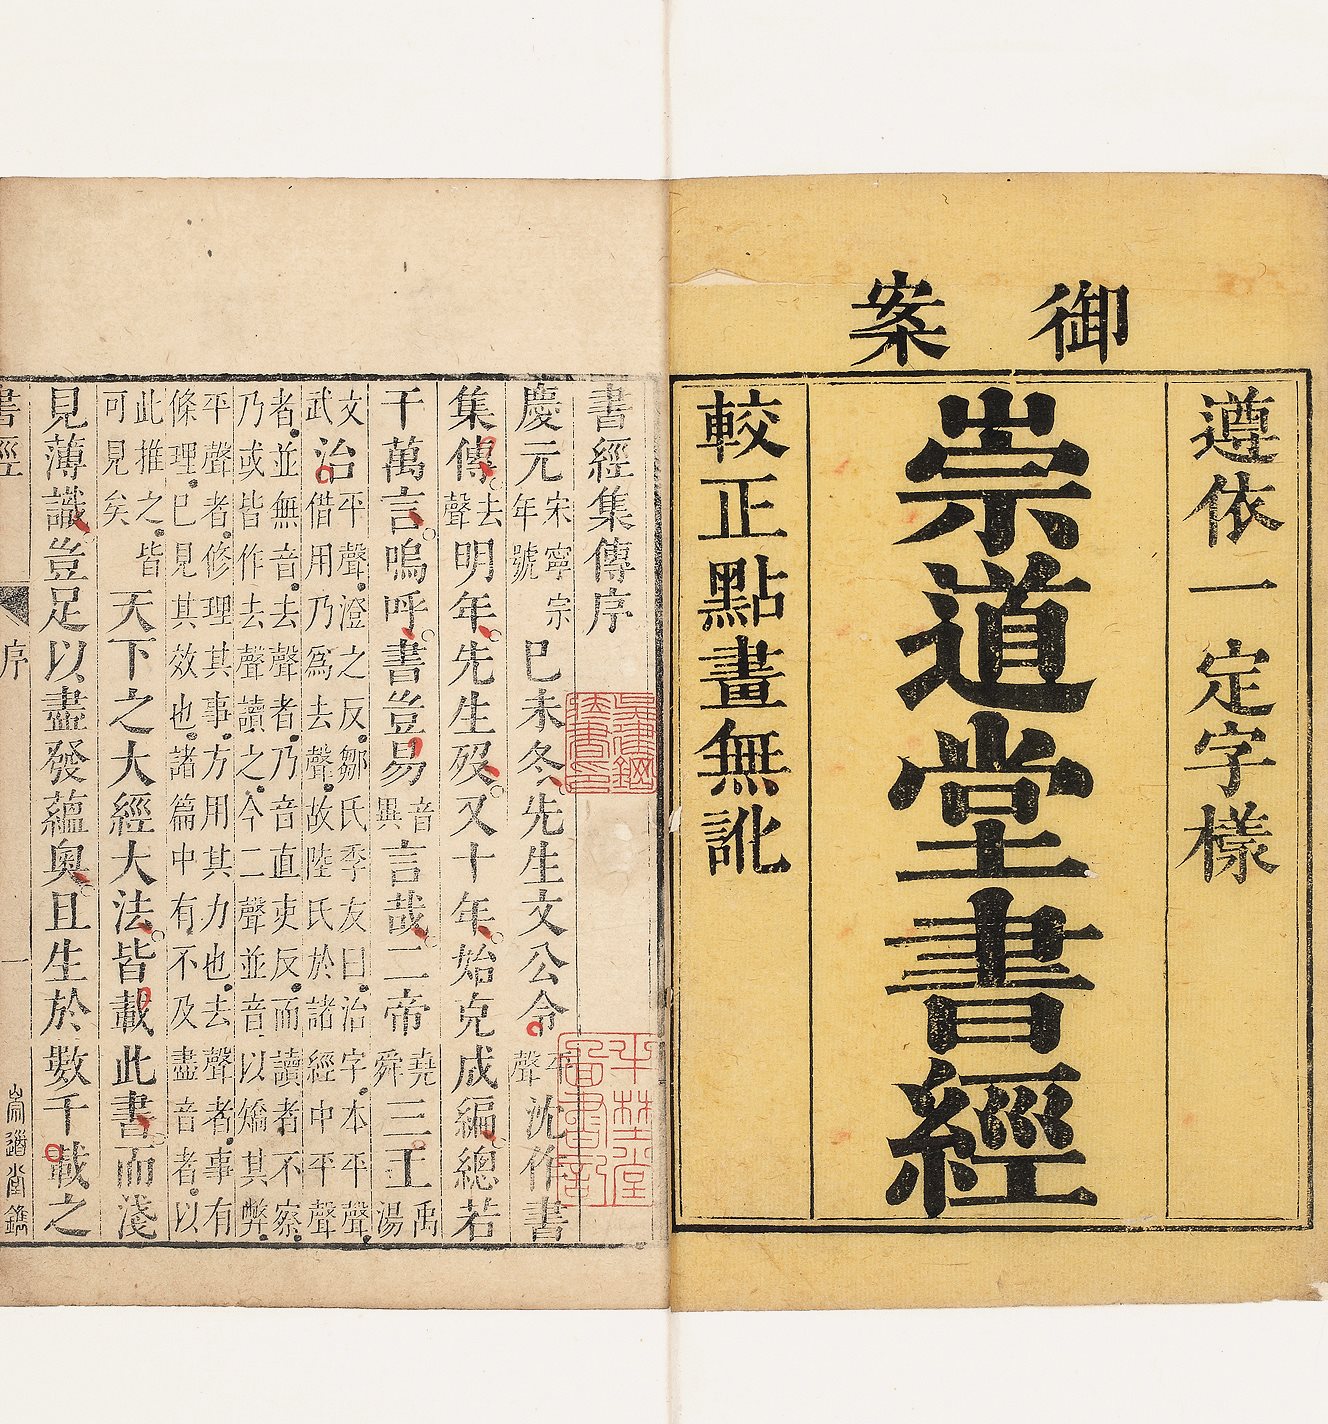 御案
遵依一定字樣
崇道堂書經
較正點畫無訛
書經集傳序
慶元年號宋寧宗已未冬先生文公令平聲沈作書
集傳去聲明年先生歿又十年始克成編總若
千萬言嗚呼書豈易音異言哉二帝堯舜三王禹湯
文武治平聲澄之反鄒氏季友曰治字本平聲
借用乃爲去聲故陸氏於諸經中平聲
者並無音去聲者乃音直吏反而讀者不察
乃或皆作去聲讀之今二聲並音以矯其弊
平聲者修理其事方用其力也去聲者事有
條理已見其效也諸篇中有不及盡音者以
此推之皆可見矣天下之大經大法皆載此書而淺
見薄識豈足以盡發蘊奥且生於數千載之
書經 序 一 崇道堂鐫